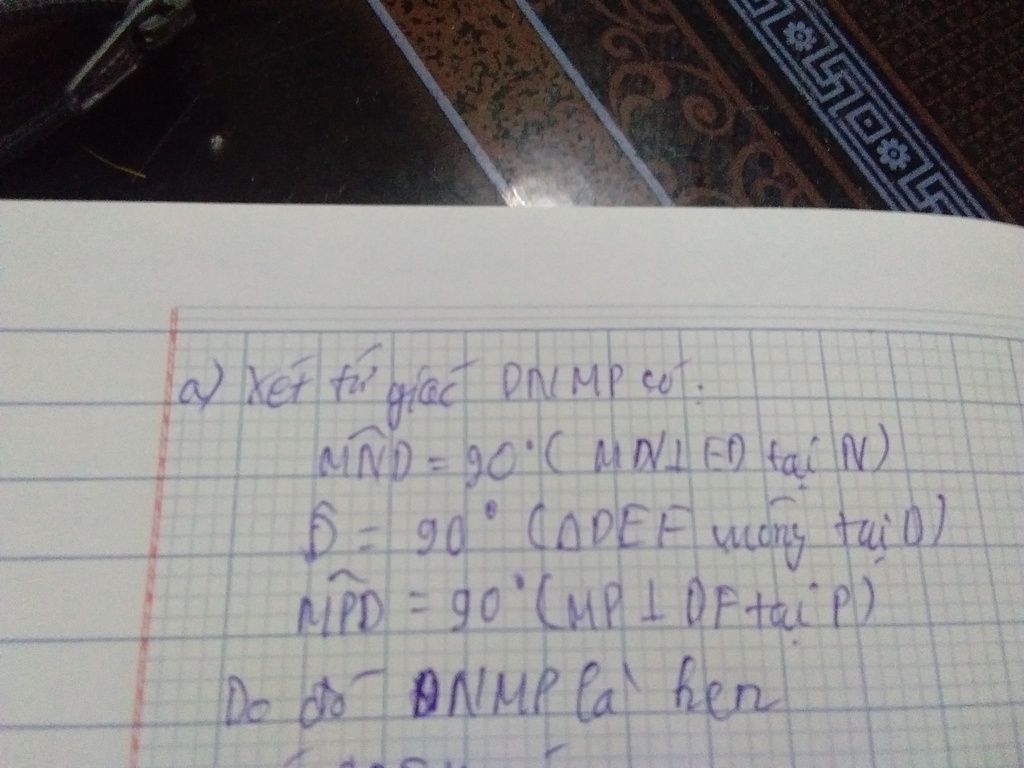 a) Xét tứ giác DNMP có:
MND = 90° ( MN⊥ED tại N)
D̂ = 90° (ΔDEF vuông tại D)
MPD = 90° (MP⊥DF tại P)
Do đó DNMP là hcn